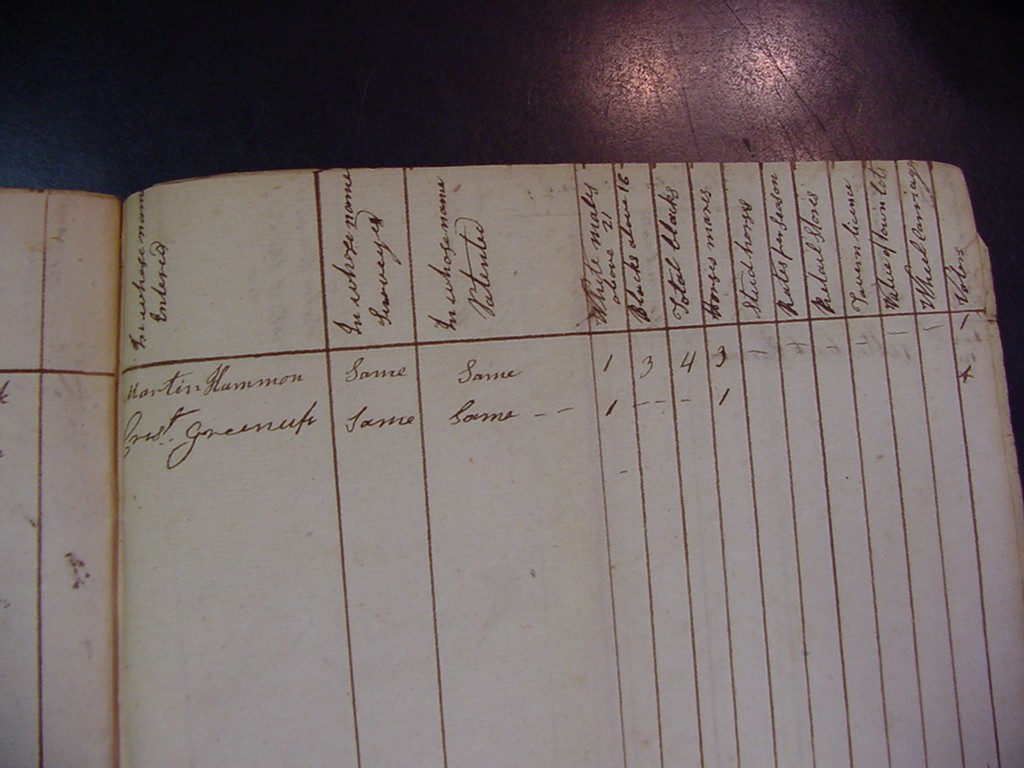 In whose name
Entered
In whose name
Surveyed
In whose name
Patented
White males
above 21
Blacks above 16
Total blacks
Horses mares
Stud horses
Rates per season
Retail Stores
Tavern licence
Value of town lots
Wheel carriag
Voters
Martin Hammon Same Same 1 3 4 3 - - - - - - 1
Crist. Greenup Same Same - - 1 - - - 1